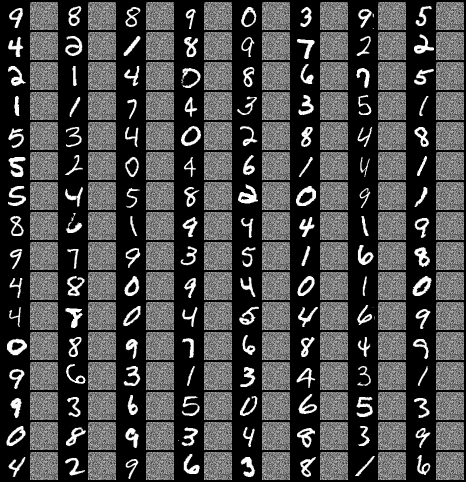 9 8 8 9 0 3 9 5
4 2 1 8 9 7 2 2
2 1 4 0 8 6 7 5
1 1 7 4 3 3 5 1
5 3 4 0 2 8 4 8
5 2 0 4 6 1 4 1
5 4 5 8 2 0 9 1
8 6 1 9 4 4 1 9
9 7 9 3 5 1 6 8
4 8 0 9 4 0 1 0
4 8 0 4 5 4 6 9
0 8 9 7 6 8 4 9
9 6 3 1 3 4 3 1
9 3 6 5 0 6 5 3
0 8 9 3 4 8 3 9
4 2 9 6 3 8 1 6